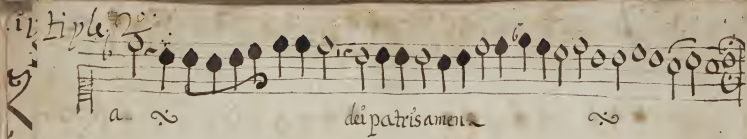 tiple 2º
a dei patris amen